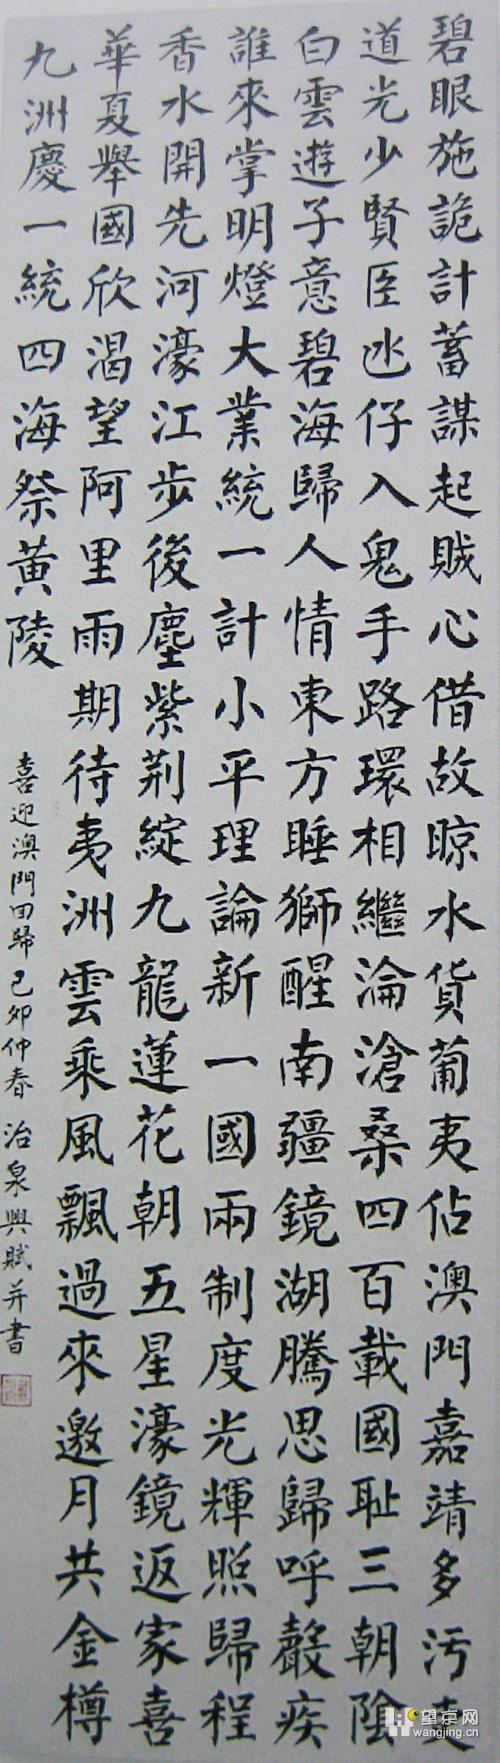 碧眼施詭計蓄謀起賊心借故晾水貨葡夷佔澳門嘉靖多污
道光少賢臣氹仔入鬼手路環相繼淪滄桑四百載國耻三朝陰
白雲遊子意碧海歸人情東方睡獅醒南疆鏡湖騰思歸呼聲疾
誰來掌明燈大業統一計小平理論新一國兩制度光輝照歸程
香水開先河濠江步後塵紫荊綻九龍蓮花朝五星濠鏡返家喜
華夏舉國欣渴望阿里雨期待夷洲雲乘風飄過來邀月共金樽
九洲慶一統四海祭黃陵
喜迎澳門回歸己卯仲春治泉興賦并書
望京网
wangjing.cn